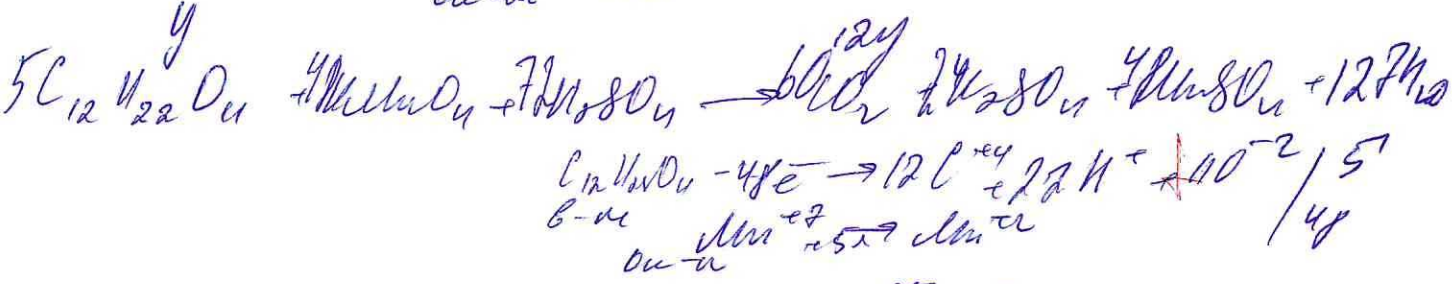 y 12y
5C₁₂H₂₂O₁₁ + 48KMnO₄ + 72H₂SO₄ → 60CO₂ + 24K₂SO₄ + 48MnSO₄ + 127H₂O
C₁₂H₂₂O₁₁ - 48e⁻ → 12C⁺⁴ + 22H⁺ + 11O⁻² | 5
в-ль Mn⁺⁷ +5e → Mn⁺² | 48
ок-ль